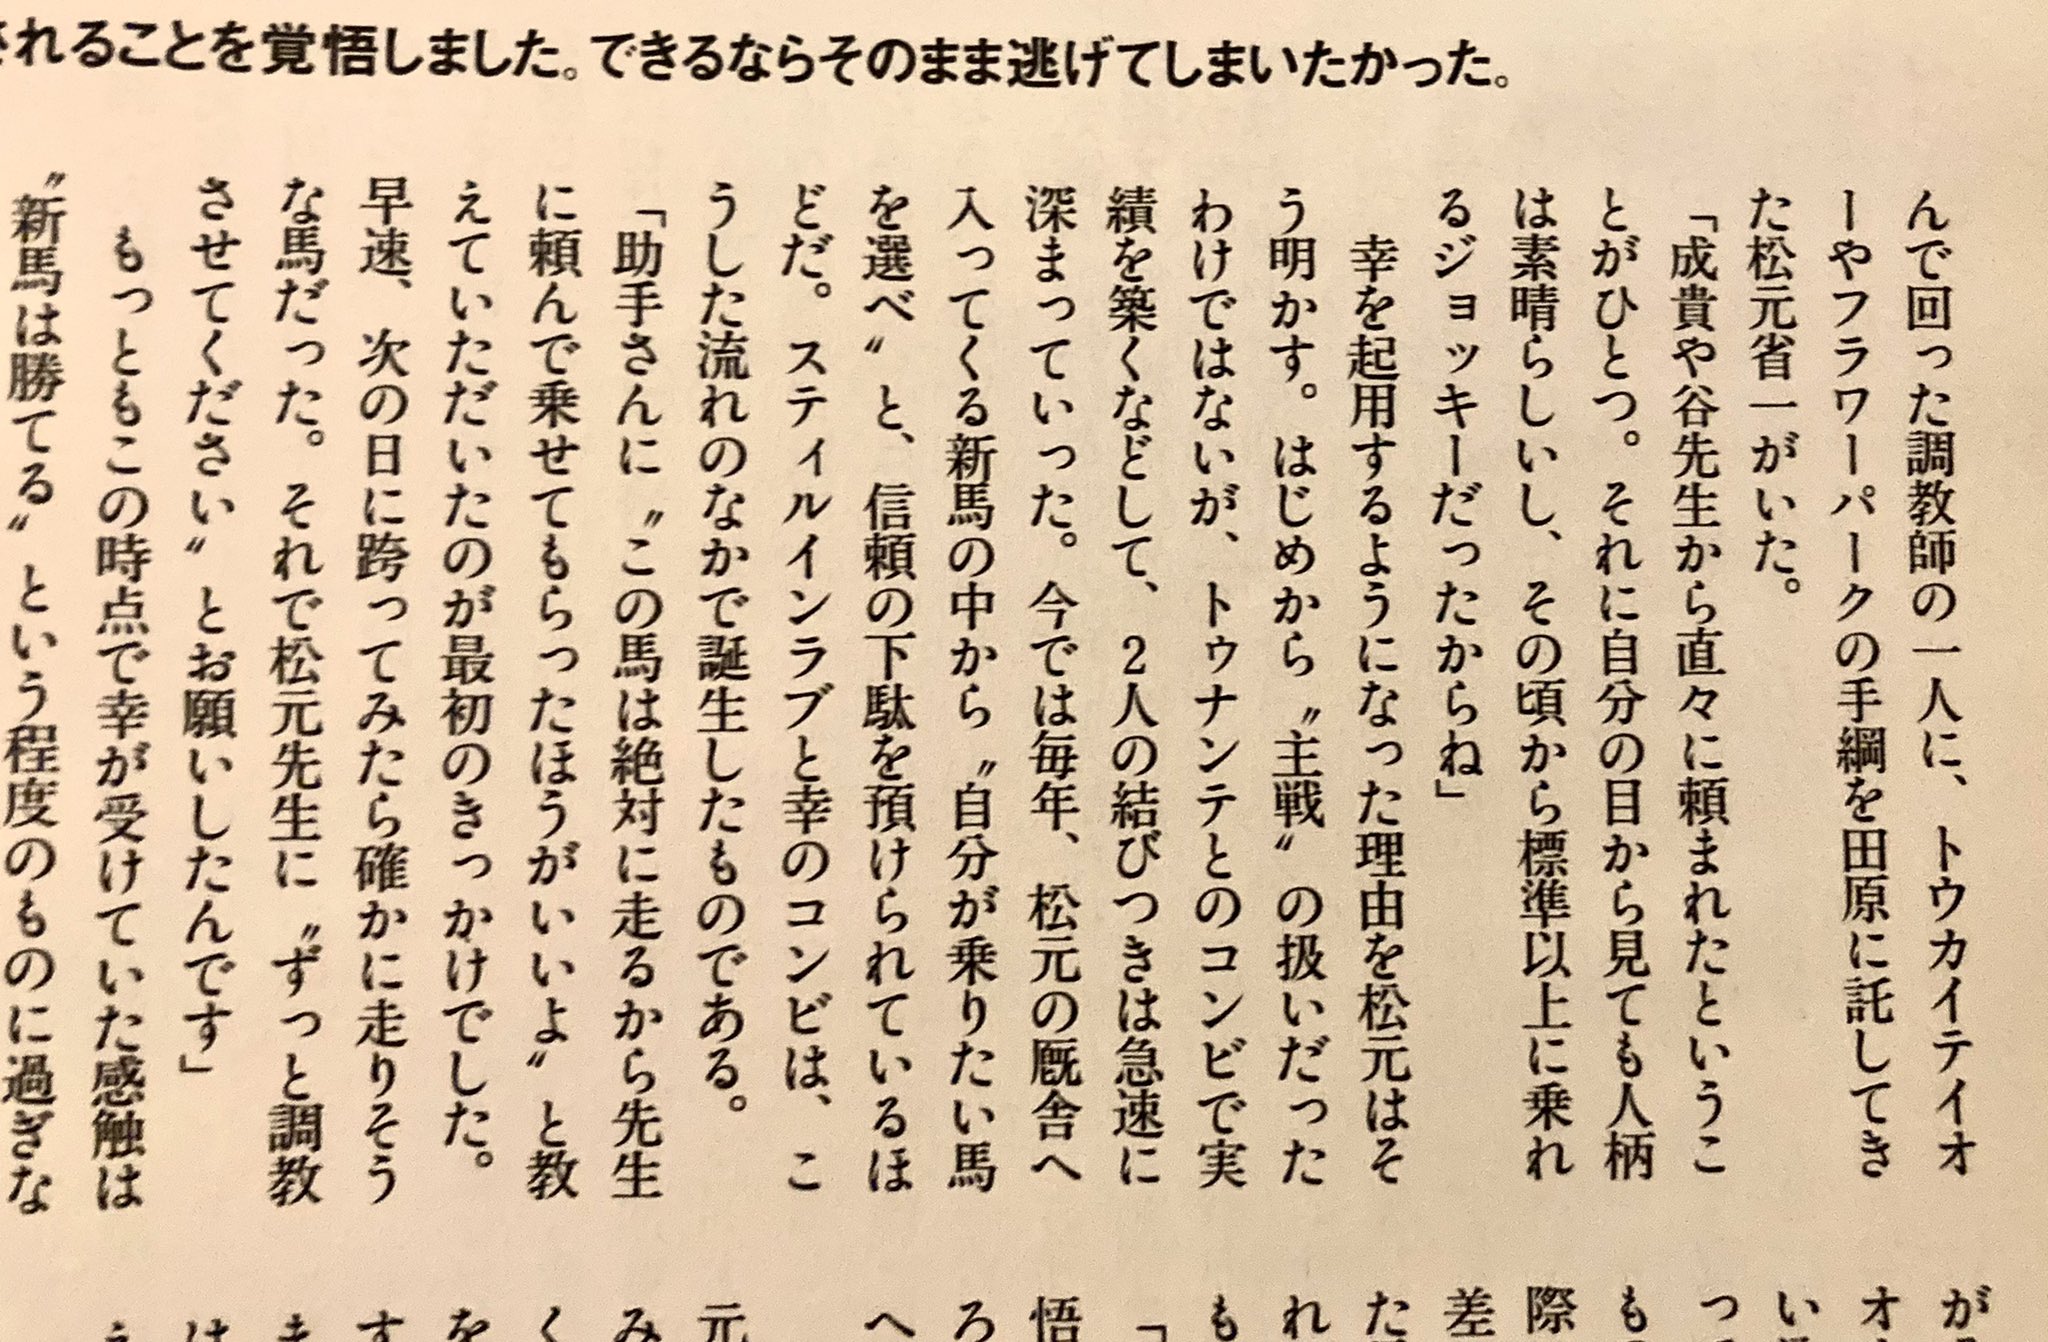 されることを覚悟しました。できるならそのまま逃げてしまいたかった。
んで回った調教師の一人に、トウカイテイオ
ーやフラワーパークの手綱を田原に託してき
た松元省一がいた。
「成貴や谷先生から直々に頼まれたというこ
とがひとつ。それに自分の目から見ても人柄
は素晴らしいし、その頃から標準以上に乗れ
るジョッキーだったからね」
幸を起用するようになった理由を松元はそ
う明かす。はじめから〝主戦〟の扱いだった
わけではないが、トゥナンテとのコンビで実
績を築くなどして、2人の結びつきは急速に
深まっていった。今では毎年、松元の厩舎へ
入ってくる新馬の中から〝自分が乗りたい馬
を選べ〟と、信頼の下駄を預けられているほ
どだ。スティルインラブと幸のコンビは、こ
うした流れのなかで誕生したものである。
「助手さんに〝この馬は絶対に走るから先生
に頼んで乗せてもらったほうがいいよ〟と教
えていただいたのが最初のきっかけでした。
早速、次の日に跨ってみたら確かに走りそう
な馬だった。それで松元先生に〝ずっと調教
させてください〟とお願いしたんです」
もっともこの時点で幸が受けていた感触は
〝新馬は勝てる〟という程度のものに過ぎな
が
オ
い
っ
も
際
差
た
れ
も
「
悟
ろ
へ
元
み
く
を
す
ま
は
え